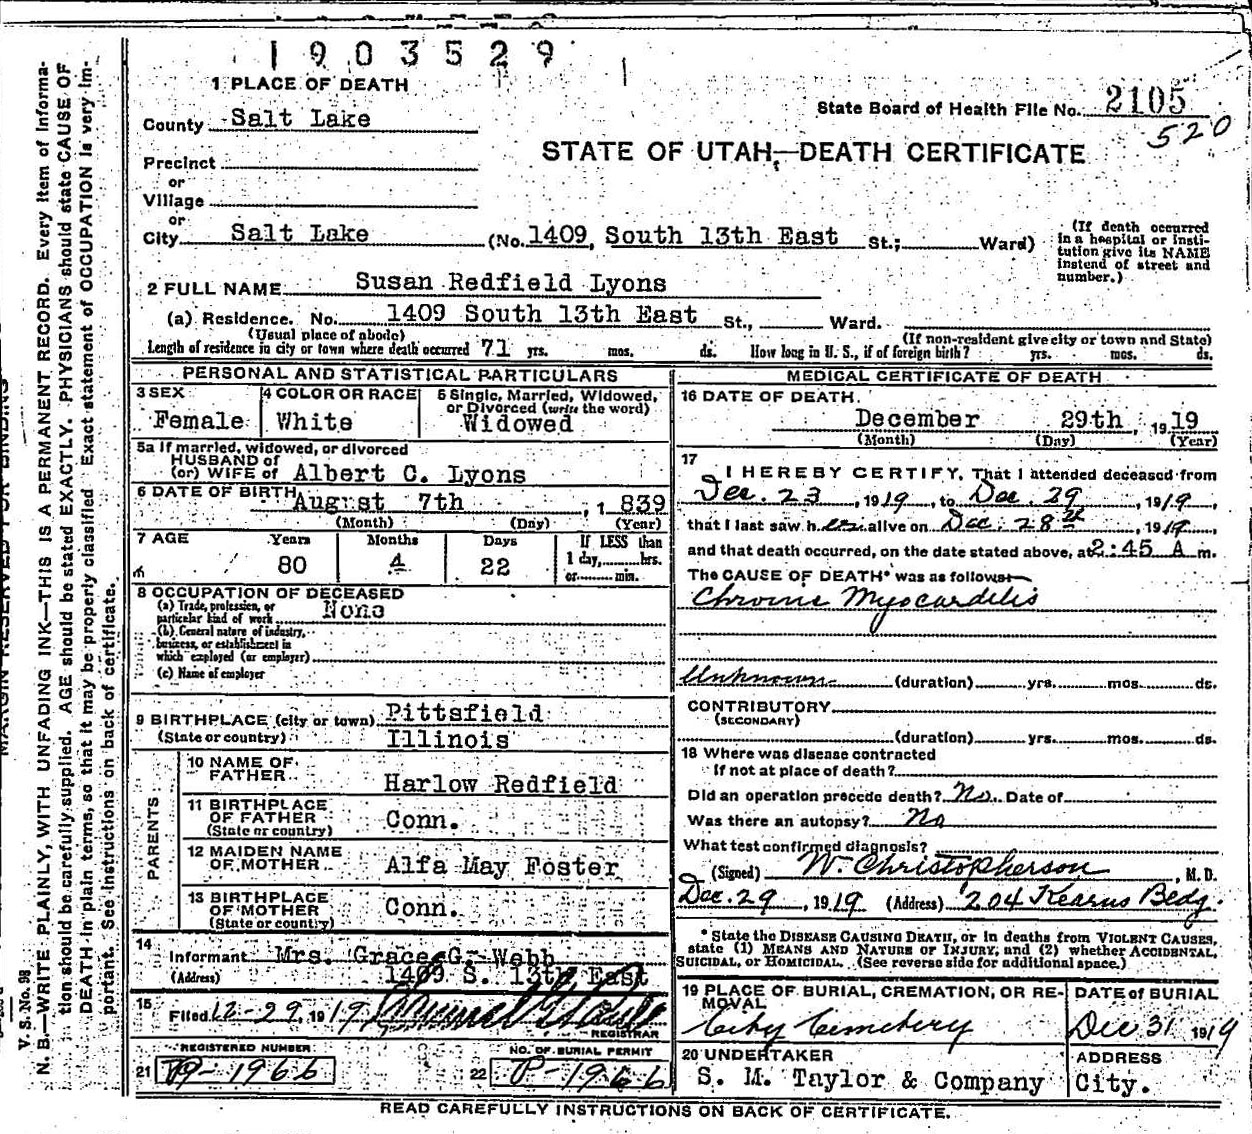 1903529
1 PLACE OF DEATH
State Board of Health File No. 2105
520
County Salt Lake
STATE OF UTAH—DEATH CERTIFICATE
Precinct
or
Village
or
City Salt Lake (No. 1409, South 13th East St.; Ward)
(If death occurred in a hospital or institution give its NAME instead of street and number.)
2 FULL NAME Susan Redfield Lyons
(a) Residence. No. 1409 South 13th East St., Ward.
(Usual place of abode) (If non-resident give city or town and State)
Length of residence in city or town where death occurred 71 yrs. mos. ds. How long in U. S., if of foreign birth? yrs. mos. ds.
PERSONAL AND STATISTICAL PARTICULARS
3 SEX
Female
4 COLOR OR RACE
White
5 Single, Married, Widowed,
or Divorced (write the word)
Widowed
5a If married, widowed, or divorced
HUSBAND of
(or) WIFE of Albert C. Lyons
6 DATE OF BIRTH August 7th, 1839
(Month) (Day) (Year)
7 AGE Years Months Days If LESS than
80 4 22 1 day, hrs.
or min.
8 OCCUPATION OF DECEASED
(a) Trade, profession, or
particular kind of work None
(b) General nature of industry,
business, or establishment in
which employed (or employer)
(c) Name of employer
9 BIRTHPLACE (city or town) Pittsfield
(State or country) Illinois
PARENTS
10 NAME OF
FATHER Harlow Redfield
11 BIRTHPLACE
OF FATHER Conn.
(State or country)
12 MAIDEN NAME
OF MOTHER Alfa May Foster
13 BIRTHPLACE
OF MOTHER Conn.
(State or country)
14
Informant Mrs. Grace G. Webb
(Address) 1409 S. 13th East
15
Filed 12-29, 1919
REGISTRAR
REGISTERED NUMBER
21 P-1966
NO. OF BURIAL PERMIT
22 P-1966
MEDICAL CERTIFICATE OF DEATH
16 DATE OF DEATH
December 29th, 1919
(Month) (Day) (Year)
17
I HEREBY CERTIFY, That I attended deceased from
Dec. 23, 1919, to Dec. 29, 1919,
that I last saw her alive on Dec. 28th, 1919,
and that death occurred, on the date stated above, at 2:45 A m.
The CAUSE OF DEATH* was as follows:
Chronic Myocarditis
Unknown (duration) yrs. mos. ds.
CONTRIBUTORY
(SECONDARY)
(duration) yrs. mos. ds.
18 Where was disease contracted
If not at place of death?
Did an operation precede death? No. Date of
Was there an autopsy? No
What test confirmed diagnosis?
(Signed) W. Christopherson, M. D.
Dec. 29, 1919 (Address) 204 Kearns Bldg.
*State the DISEASE CAUSING DEATH, or in deaths from VIOLENT CAUSES,
state (1) MEANS AND NATURE OF INJURY, and (2) whether ACCIDENTAL,
SUICIDAL, or HOMICIDAL. (See reverse side for additional space.)
19 PLACE OF BURIAL, CREMATION, OR RE-
MOVAL
City Cemetery
DATE of BURIAL
Dec 31 1919
20 UNDERTAKER
S. M. Taylor & Company
ADDRESS
City.
READ CAREFULLY INSTRUCTIONS ON BACK OF CERTIFICATE.
MARGIN RESERVED FOR BINDING
V. S. No. 98
N. B.—WRITE PLAINLY, WITH UNFADING INK—THIS IS A PERMANENT RECORD. Every item of informa-
tion should be carefully supplied. AGE should be stated EXACTLY. PHYSICIANS should state CAUSE OF
DEATH in plain terms, so that it may be properly classified. Exact statement of OCCUPATION is very im-
portant. See instructions on back of certificate.